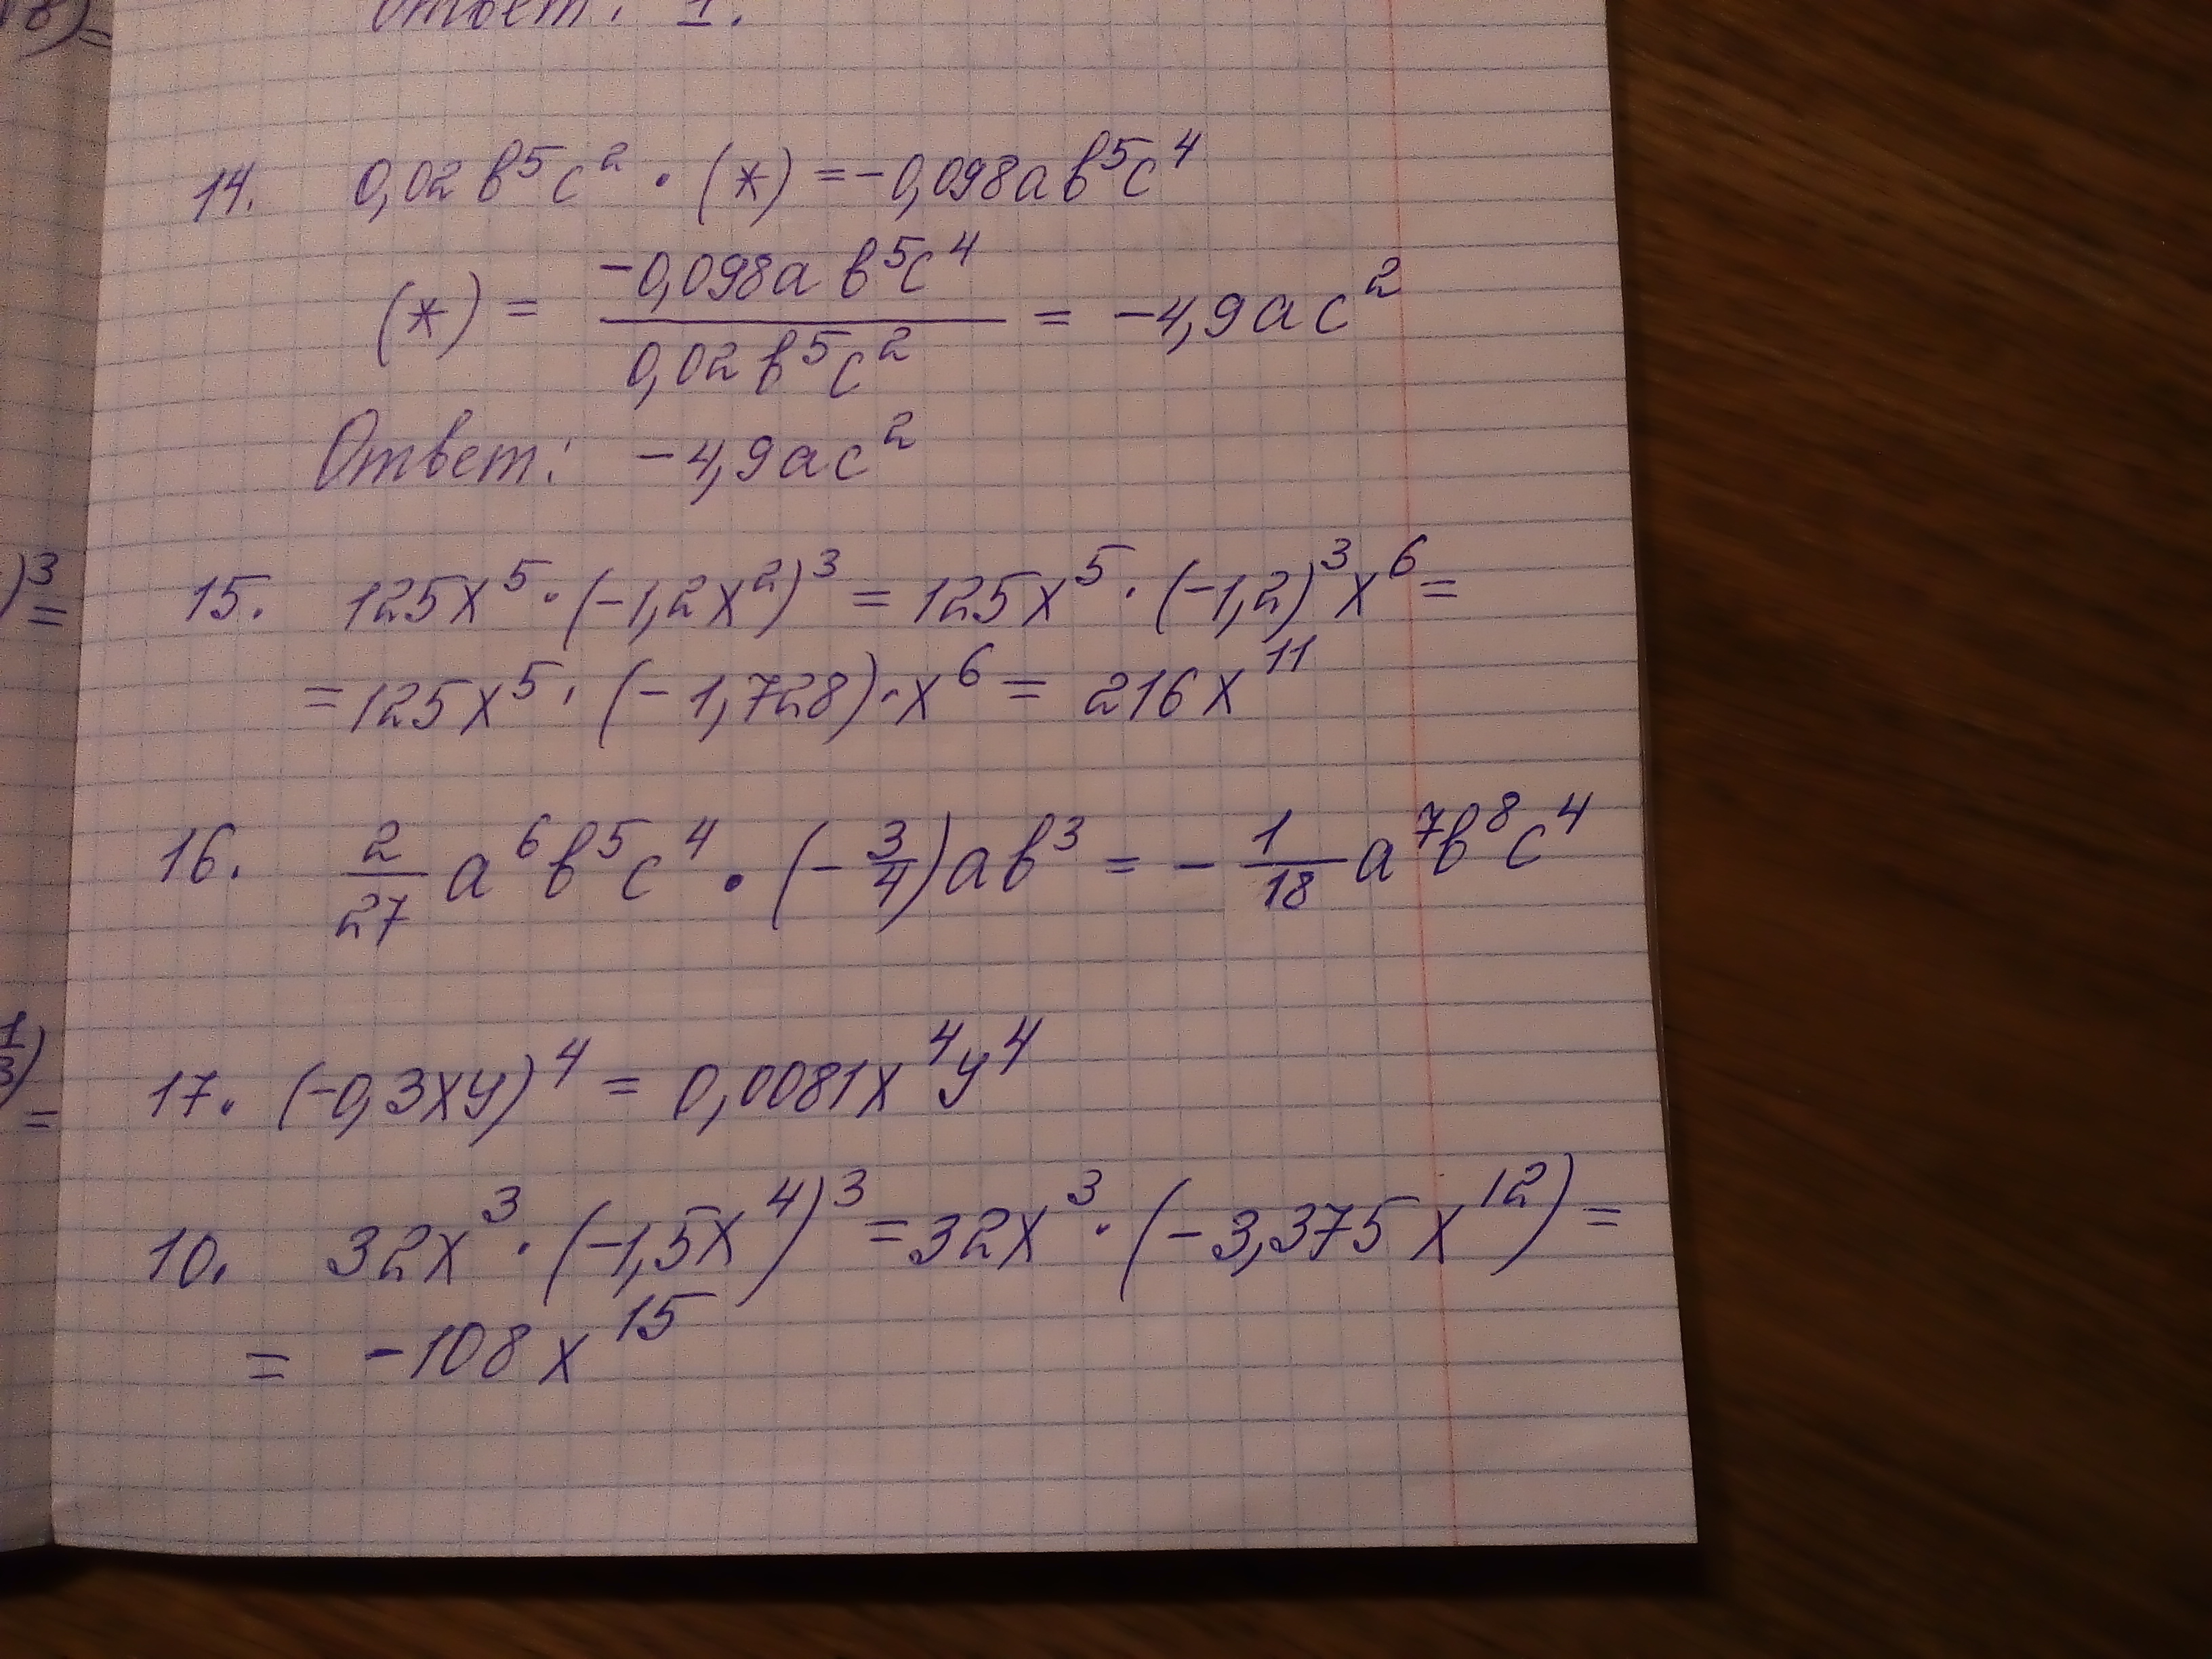 Ответ: 1.
14. 0,02 в⁵c² · (*) = -0,098aв⁵c⁴
(*) = -0,098a в⁵c⁴ / 0,02 в⁵c² = -4,9ac²
Ответ: -4,9ac²
15. 125x⁵ · (-1,2x²)³ = 125x⁵ · (-1,2)³x⁶ =
= 125x⁵ · (-1,728) · x⁶ = 216x¹¹
16. 2/27 a⁶в⁵c⁴ · (-3/4)aв³ = - 1/18 a⁷в⁸c⁴
17. (-0,3xy)⁴ = 0,0081x⁴y⁴
10. 32x³ · (-1,5x⁴)³ = 32x³ · (-3,375x¹²) =
= -108x¹⁵